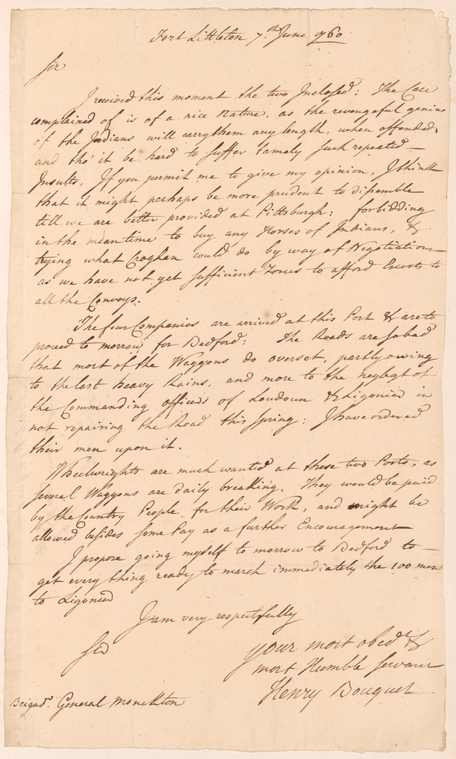 Fort Littleton 7.th June 1760
Sir
I received this moment the two Inclosed: The Case
complained of is of a nice Nature, as the revengeful genius
of the Indians will carry them any length, when offended,
and tho' it be hard to suffer tamely such repeated
Insults, If you permit me to give my opinion, I think
that it might perhaps be more prudent to dissemble
till we are better provided at Pittsburgh: forbidding
in the mean time to buy any Horses of Indians, &
trying what Croghan could do by way of Negotiation
as we have not yet sufficient Forces to afford Escorts to
all the Convoys.
The four Companies are arrived at this Post & are to
proceed to morrow for Bedford: The Roads are so bad
that most of the Waggons do overset, partly owing
to the last heavy Rains, and more to the Neglect of
the Commanding officers of Loudoun & Ligonier in
not repairing the Road this Spring: I have ordered
their men upon it.
Wheelwrights are much wanted at these two Posts, as
several Waggons are daily breaking. They would be paid
by the Country People, for their Work, and might be
allowed besides some Pay as a further Encouragement
I propose going myself to morrow to Bedford to
get every thing ready to march immediately the 100 men
to Ligonier
I am very respectfully
Sir
your most obedt. &
most Humble Servant
Henry Bouquet
Brigadr. General Monckton